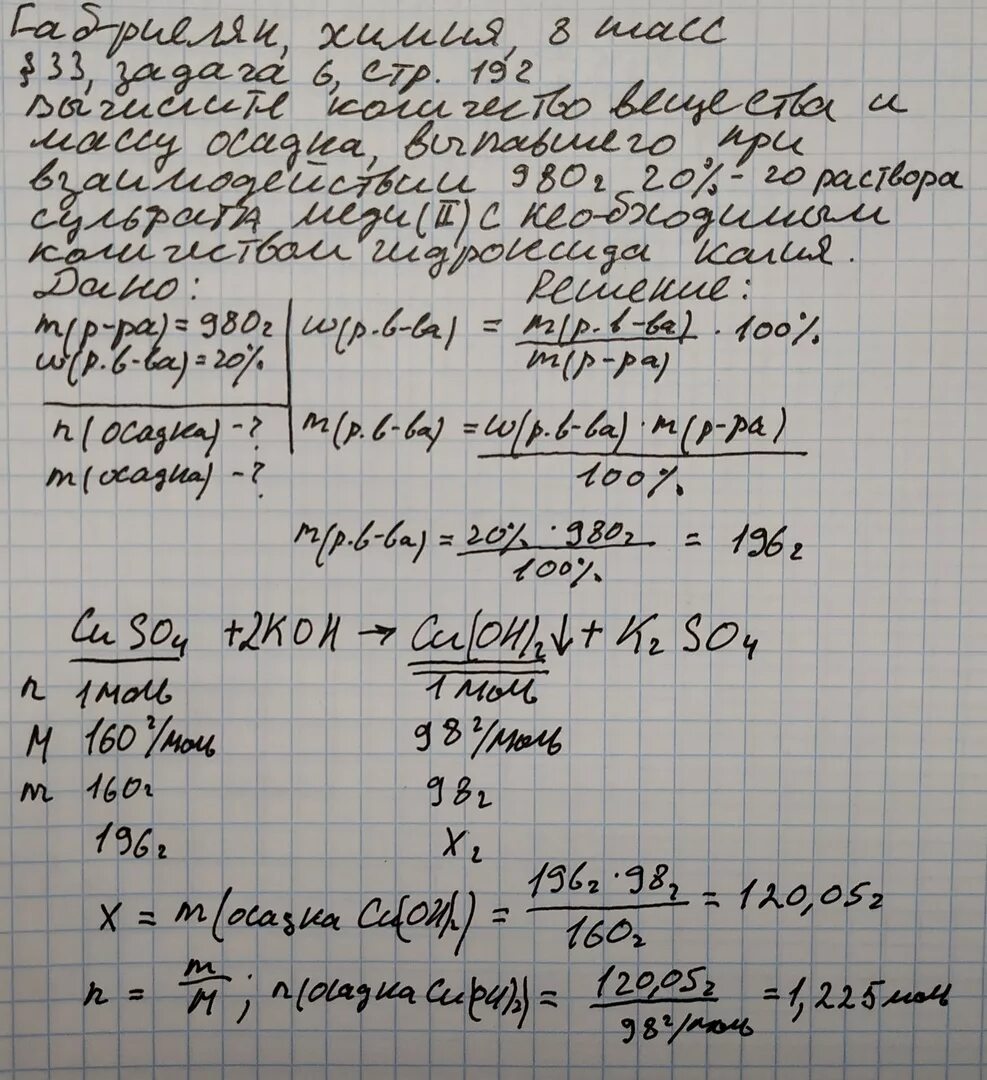 Габриелян, химия, 8 класс
§33, задача 6, стр. 192
Вычислите количество вещества и
массу осадка, выпавшего при
взаимодействии 980г 20%-го раствора
сульфата меди(II) с необходимым
количеством гидроксида калия.
Дано: Решение:
m(р-ра)=980г w(р.в-ва) = m(р.в-ва)/m(р-ра) · 100%
w(р.в-ва)=20%
n(осадка)-? m(р.в-ва) = w(р.в-ва)·m(р-ра)/100%
m(осадка)-?
m(р.в-ва) = 20% · 980г/100% = 196г
CuSO₄ +2KOH → Cu(OH)₂↓ + K₂SO₄
n 1моль 1моль
M 160г/моль 98г/моль
m 160г 98г
196г Xг
X = m(осадка Cu(OH)₂) = 196г·98г/160г = 120,05г
n = m/M; n(осадка Cu(OH)₂) = 120,05г/98г/моль = 1,225моль